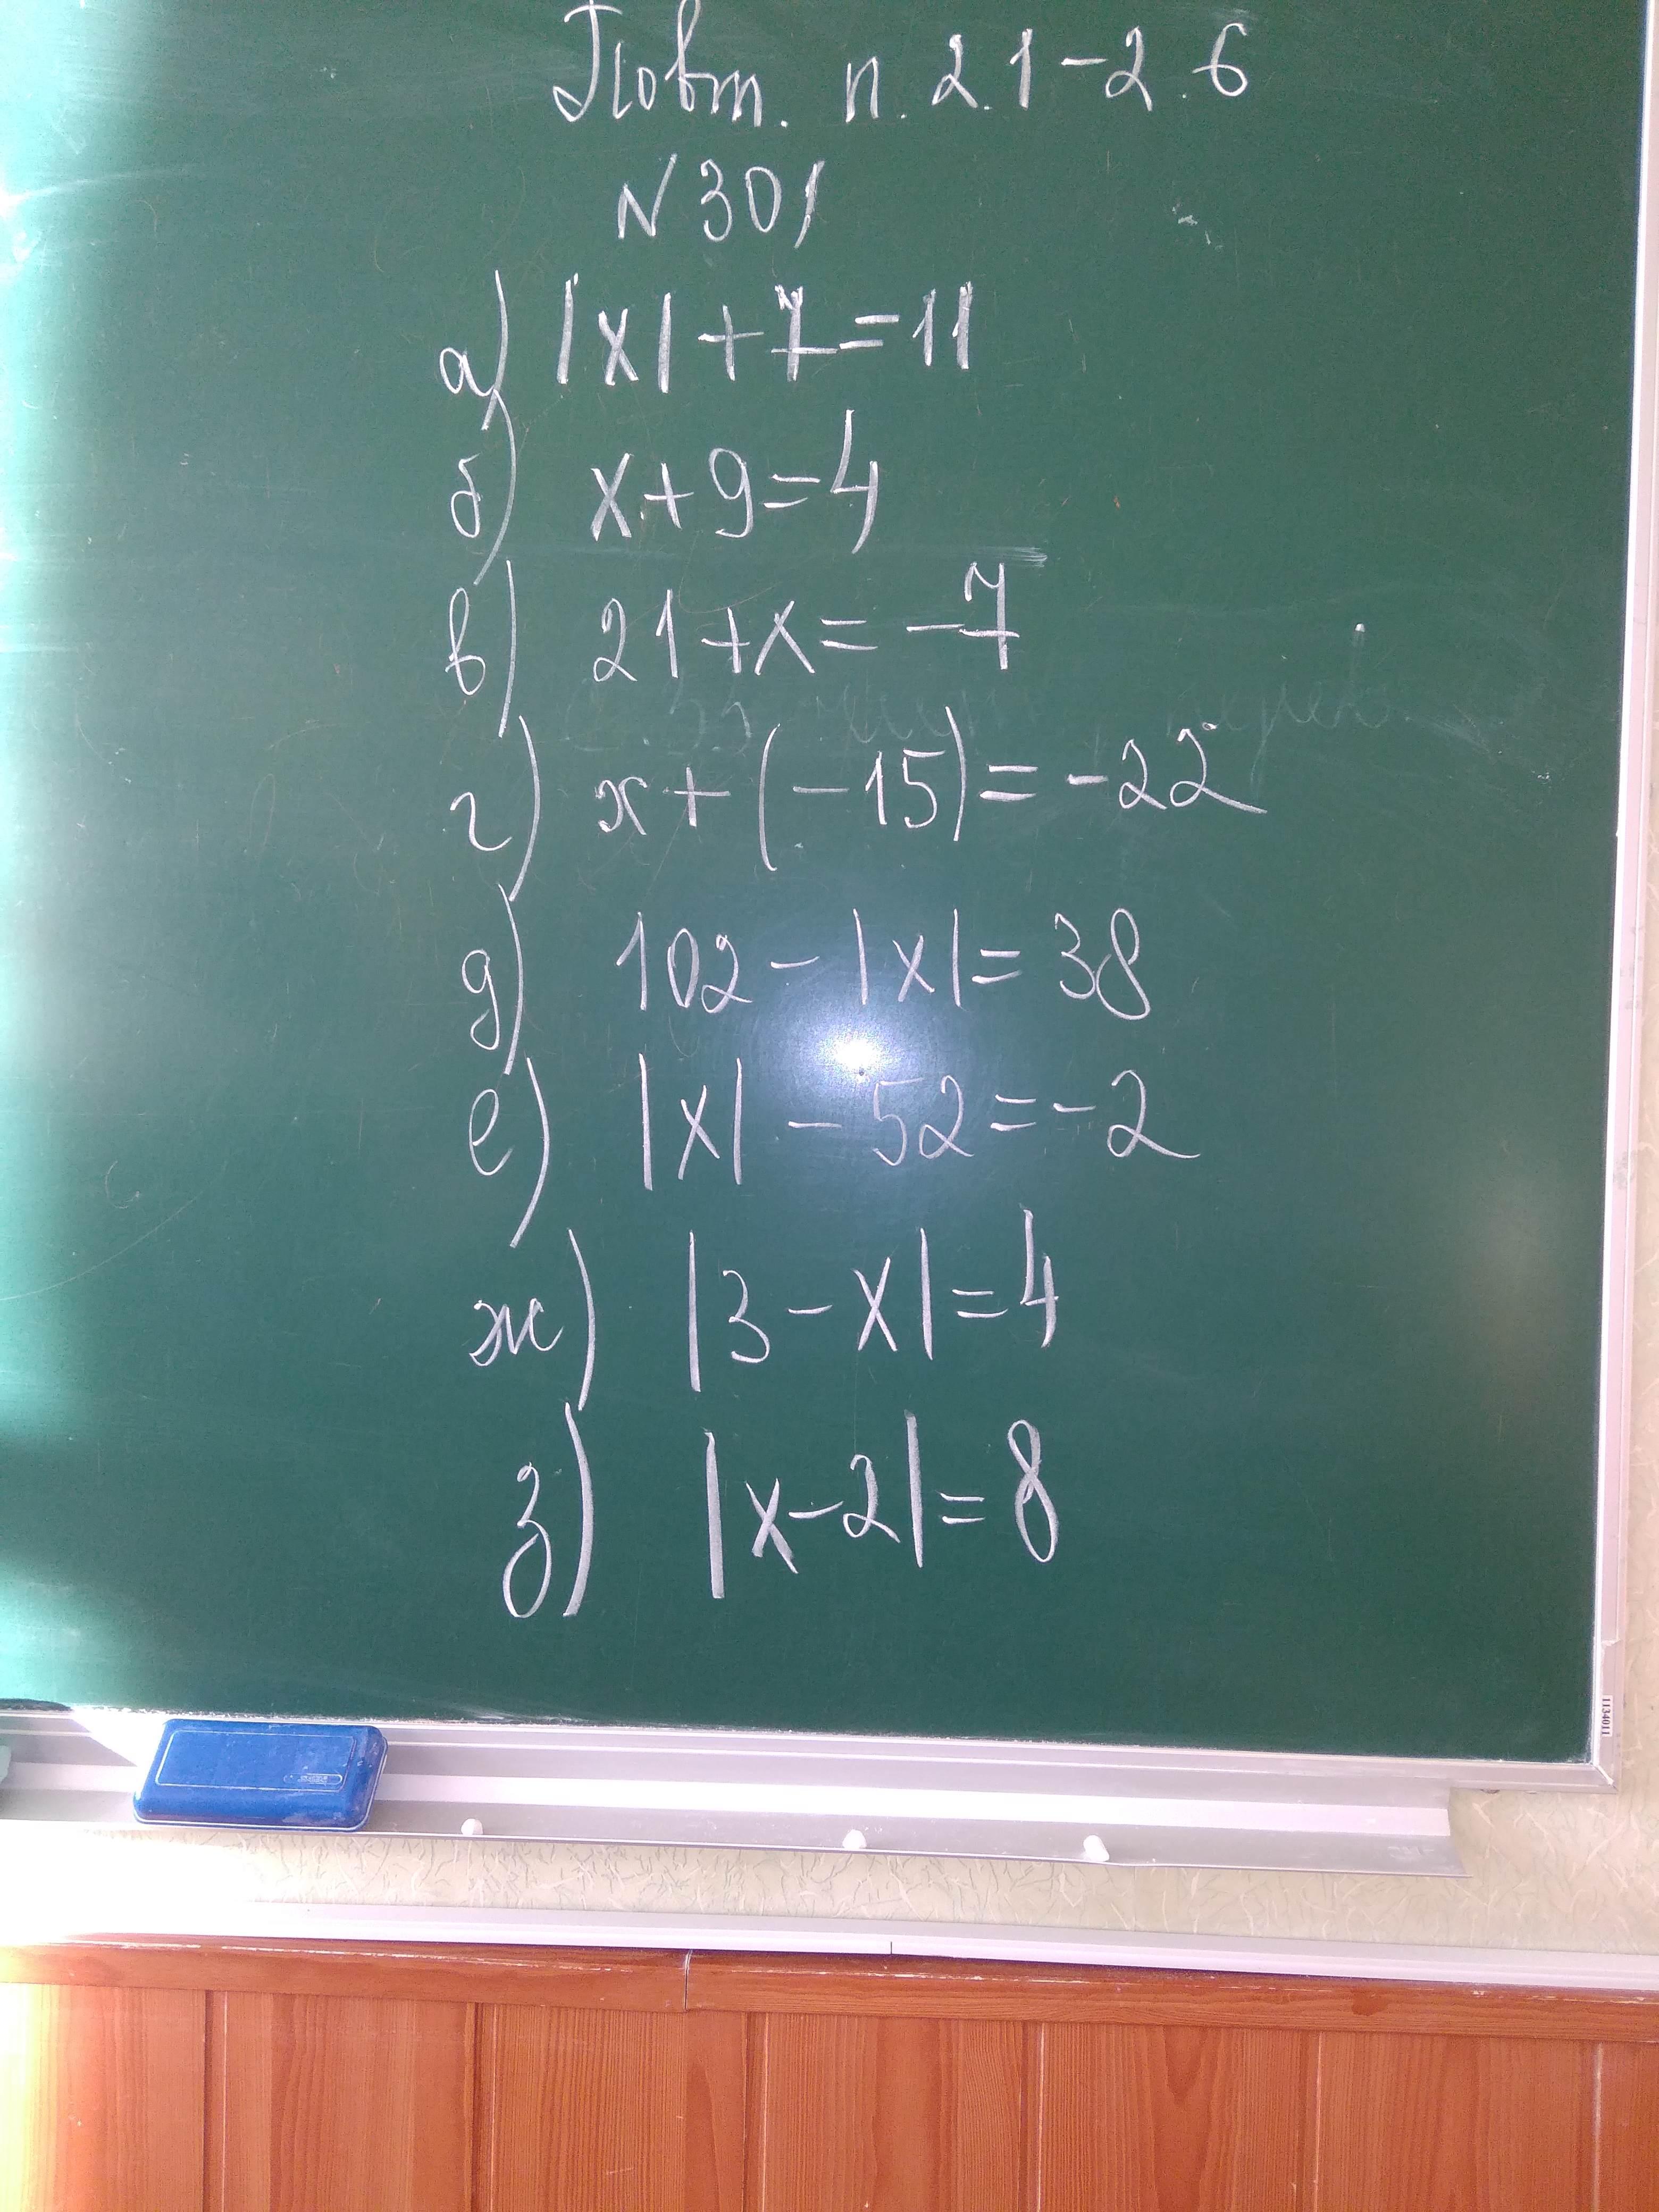 Повт. п. 2.1-2.6
N 301
а) |x|+7=11
б) x+9=4
в) 21+x=-7
г) x+(-15)=-22
д) 102-|x|=38
е) |x|-52=-2
ж) |3-x|=4
з) |x-2|=8
1134011